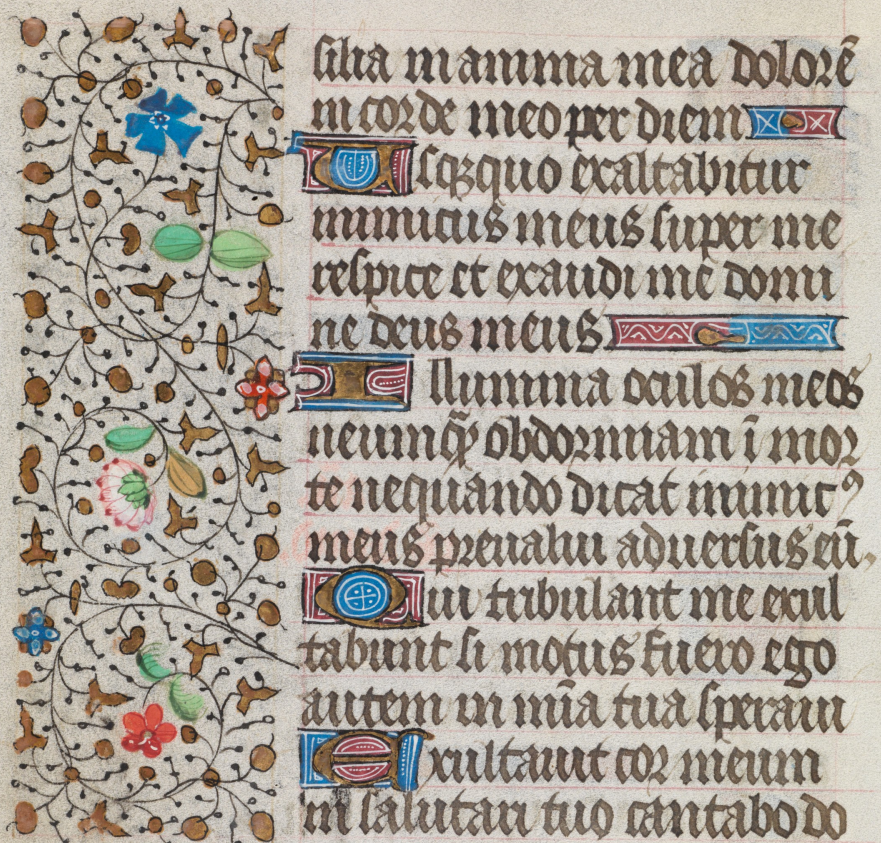 silia in anima mea dolorē
in corde meo per diem
Usqȝquo exaltabitur
inimicus meus super me
respice et exaudi me domi
ne deus meus
Illumina oculos meos
ne unqͣȝ obdormiam ī mor
te nequando dicat inimicꝰ
meus preualui aduersus eū,
Qui tribulant me exul
tabunt si motus fuero ego
autem in mīa tua speraui
Exultauit cor meum
in salutari tuo cantabo do